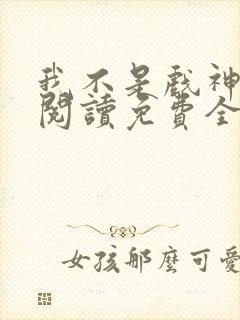 我不是戲神
閱讀免費全
女孩那麼可愛